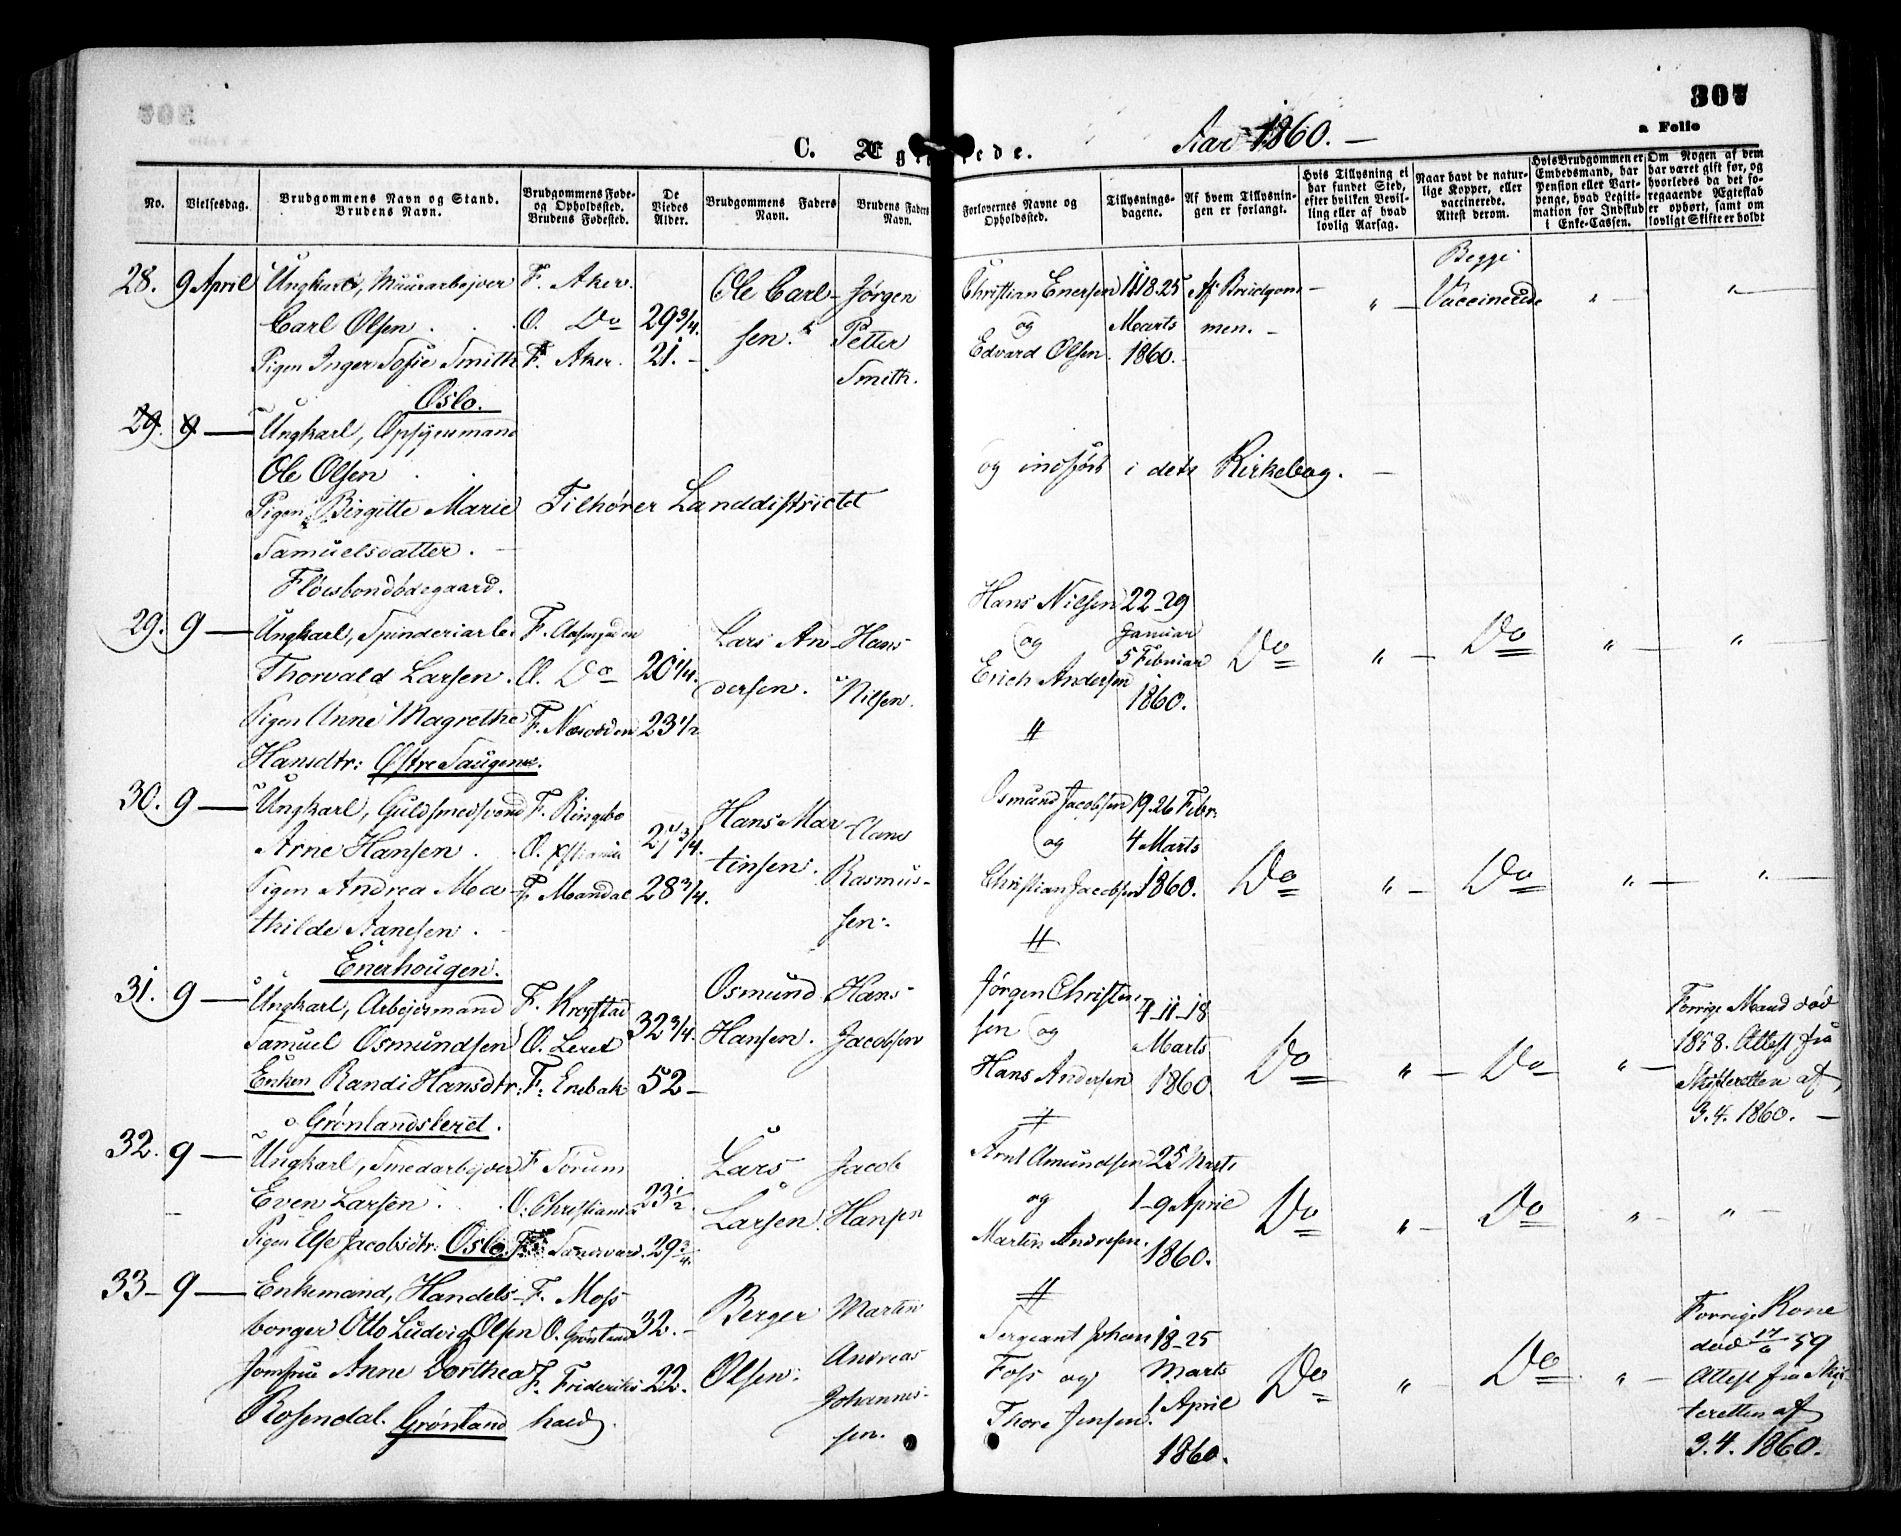 307
a Folio
C. Ægteviede.
Aar 1860. —
No.
Vielsesdag.
Brudgommens Navn og Stand.
Brudens Navn.
Brudgommens Føde-
og Opholdssted.
Brudens Fødested.
De
Viedes
Alder.
Brudgommens Faders
Navn.
Brudens Faders
Navn.
Forlovernes Navne og
Opholdssted.
Tillysnings-
dagene.
Af hvem Tillysnin-
gen er forlangt.
Hvis Tillysning ei
har fundet Sted,
efter hvilken Bevil-
ling eller af hvad
lovlig Aarsag.
Naar havt de natur-
lige Kopper, eller
vaccinerede.
Attest derom.
Hvis Brudgommen er
Embedsmand, har
Pension eller Vart-
penge, hvad Legiti-
mation for Indskud
i Enke-Cassen.
Om Nogen af dem
har været gift før, og
hvorledes da det fo-
regaaende Ægteskab
er ophørt, samt om
lovligt Skifte er holdt
28. 9 April Ungkarl, Muurarbejder F. Aker. Ole Carl- Jørgen
Carl Olsen . . O. Do 29 3/4. sen. Petter
Pigen Inger Sofie Smith F. Aker. 21. - Smith.
Oslo.
Christian Enersen 11.18.25 Af Brudgom-
og Marts men. -
Edvard Olsen. 1860.
Begge
" — Vaccinerede " — "
29. 9 — Ungkarl, Opsynsmand
Ole Olsen
Pigen Birgitte Marie Tilhører Landdistrictet
og indført i dets Kirkebog. —
Samuelsdatter. —
Fløisbondødegaard.
29. 9 — Ungkarl, Spinderiarb. F. Lars An- Hans
Thorvald Larsen. O. Do 20 1/4. dersen. Nilsen.
Pigen Anne Magrethe F. Næsodden 23 1/2
Hansdtr: Østre Saugene.
Hans Nilsen 22-29
og Januar
Erich Andersen 5 Februar
1860.
Do " — Do " — "
30. 9 — Ungkarl, Guldsmedsvend F. Ringebo Hans Mar-
Arne Hansen . O. Xstiania 27 3/4. tinsen. Rasmus-
Pigen Andrea Ma- F. Mandal 28 3/4. sen.
thilde Aanesen .
Enerhougen.
Osmund Jacobsen 19.26 Febr.
og 4 Marts
Christian Jacobsen 1860.
Do " — Do " — "
31. 9 — Ungkarl, Arbejdsmand F. Osmund Hans
Samuel Osmundsen O. Leret 32 3/4. Hansen. Jacobsen
Enken Randi Hansdtr: F. Enebak 52 —
Grønlandsleret.
Jørgen Christen-
sen og 4-11-18
Marts
Hans Andersen 1860.
Do " — Do " —
Forrige Mand død
1858. Attest fra
Skifteretten af
3.4.1860. —
32. 9 — Ungkarl, Smedarbejder F. Sørum Lars Jacob
Even Larsen . O. Christiania 23 1/2. Larsen. Hansen
Pigen Else Jacobsdtr: Oslo. 29 3/4.
Arnt Amundsen 25 Marts
og 1-9 April
Martin Andresen. 1860.
Do " — Do " — " —
33 - 9 — Enkemand, Handels- F. Moss Berger Martin
borger Otto Ludvig Olsen O. Grønland 32. - Olsen. Andreas
Jomfru Anne Dorthea F. Frideriks- 22. Johannes-
Rosendal. Grønland hald. sen.
Sergeant Johan 18-25
Foss og Marts
Thore Jensen. 1 April
1860.
Do " Do " —
Forrige Kone
død 17/6 59
Attest fra Skif-
teretten af
3.4.1860.